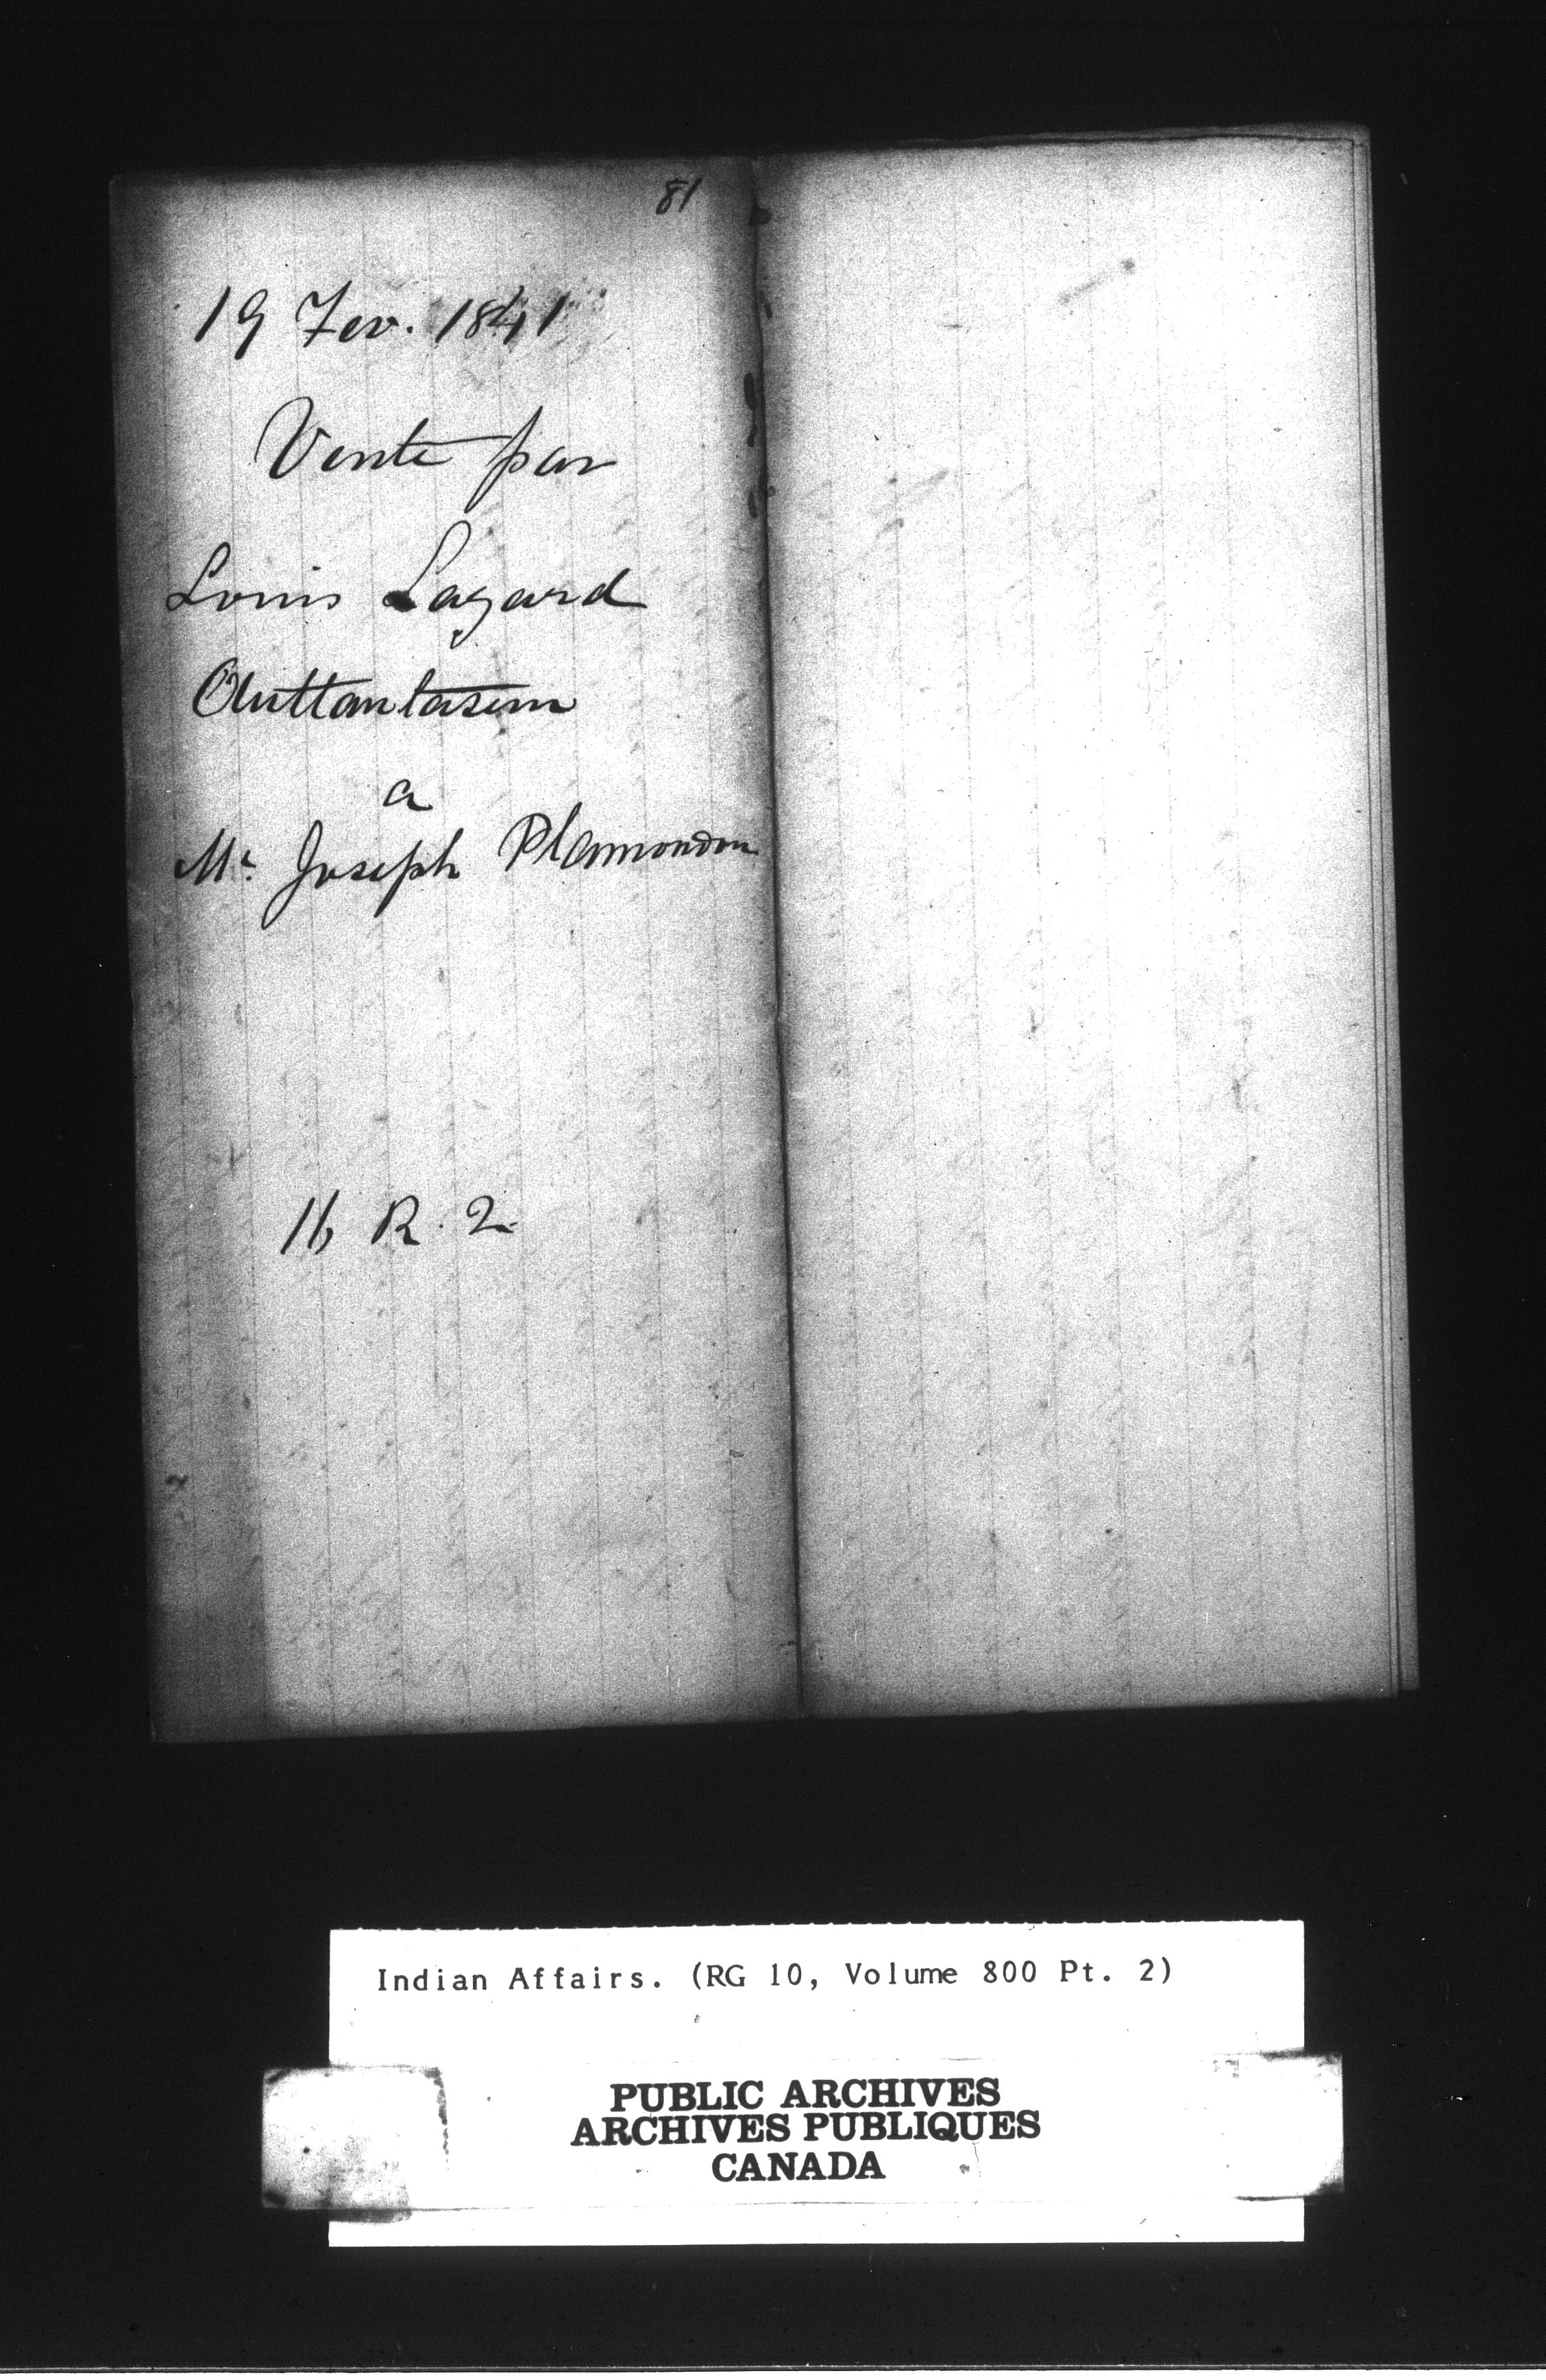 81
19 Fev. 1841
Vente par
Louis Lazard
Auttantasim
a
Mr. Joseph Plamondon
16 R. 2
Indian Affairs. (RG 10, Volume 800 Pt. 2)
PUBLIC ARCHIVES
ARCHIVES PUBLIQUES
CANADA